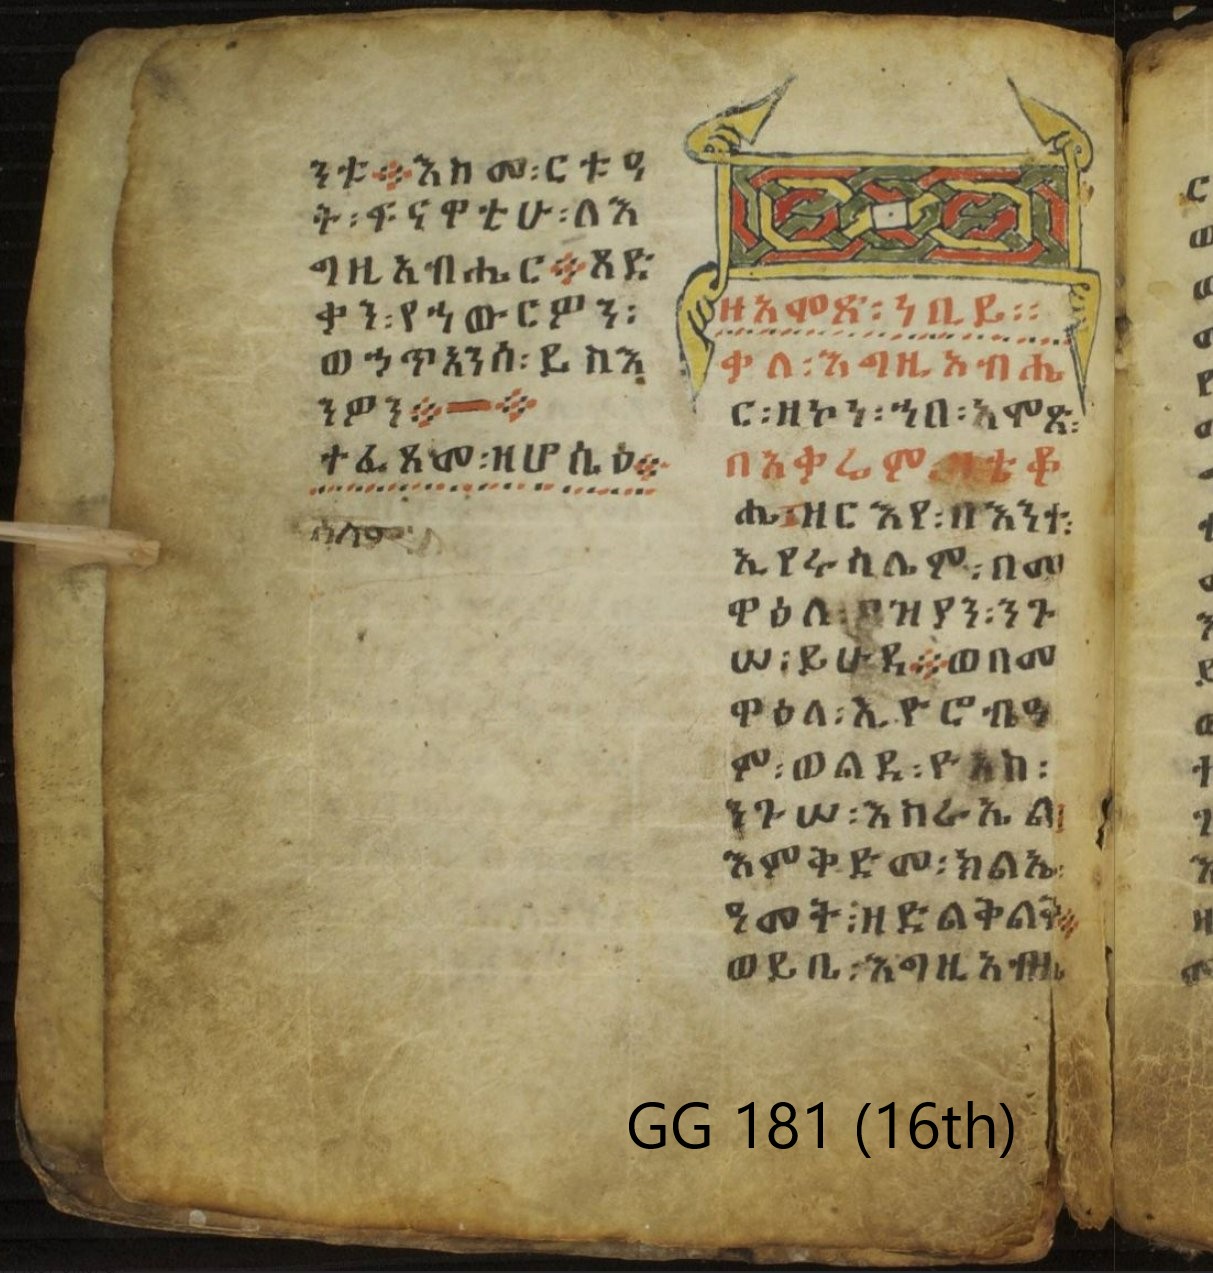 ንቱ ። እስመ ፡ ርቱዓ
ት ፡ ፍናዋቲሁ ፡ ለእ
ግዚአብሔር ። ጻድ
ቃን ፡ የኀውርዎን ፡
ወኃጥኣንሰ ፡ ይስእ
ንዎን ።
ተፈጸመ ፡ ዘሆሴዕ ።
ሰላም ፡
ዘአሞጽ ፡ ነቢይ ።
ቃለ ፡ እግዚአብሔ
ር ፡ ዘኮነ ፡ ኀበ ፡ አሞጽ ፡
በአቃሬም
ሔ ፡ ዘርእየ ፡ በእንተ ፡
ኢየሩሳሌም ፡ በመ
ዋዕለ ፡ ዖዝያን ፡ ንጉ
ሠ ፡ ይሁዳ ። ወበመ
ዋዕለ ፡ ኢዮሮብዓ
ም ፡ ወልደ ፡ ዮአስ ፡
ንጉሠ ፡ እስራኤል ፡
እምቅድመ ፡ ክልኤ ፡
ዓመት ፡ ዘድልቅልቅ ።
ወይቤ ፡ እግዚአብሔ
GG 181 (16th)